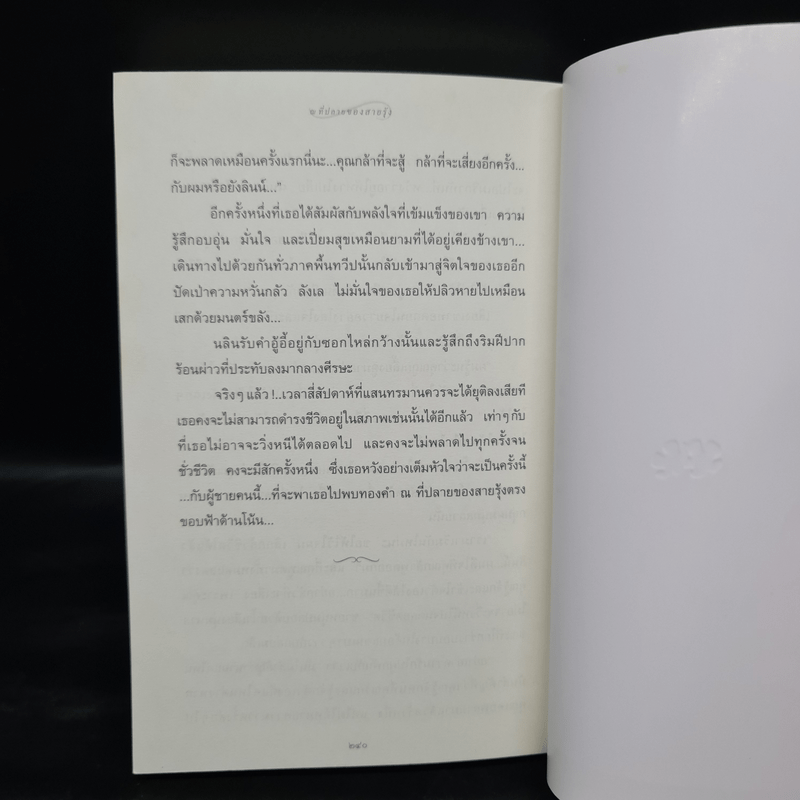 ก็จะพลาดเหมือนครั้งแรกนี่นะ...คุณกล้าที่จะสู้ กล้าที่จะเสี่ยงอีกครั้ง...
กับผมหรือยังลินน์..."
อีกครั้งหนึ่งที่เธอได้สัมผัสกับพลังใจที่เข้มแข็งของเขา ความ
รู้สึกอบอุ่น มั่นใจ และเปี่ยมสุขเหมือนยามที่ได้อยู่เคียงข้างเขา...
เดินทางไปด้วยกันทั่วภาคพื้นทวีปนั้นกลับเข้ามาสู่จิตใจของเธออีก
ปัดเป่าความหวั่นกลัว ลังเล ไม่มั่นใจของเธอให้ปลิวหายไปเหมือน
เสกด้วยมนตร์ขลัง...
นลินรับคำอู้อี้อยู่กับซอกไหล่กว้างนั้นและรู้สึกถึงริมฝีปาก
ร้อนผ่าวที่ประทับลงมากลางศีรษะ
จริงๆ แล้ว !..เวลาสี่สัปดาห์ที่แสนทรมานควรจะได้ยุติลงเสียที
เธอคงจะไม่สามารถดำรงชีวิตอยู่ในสภาพเช่นนั้นได้อีกแล้ว เท่าๆ กับ
ที่เธอไม่อาจจะวิ่งหนีได้ตลอดไป และคงจะไม่พลาดไปทุกครั้งจน
ชั่วชีวิต คงจะมีสักครั้งหนึ่ง ซึ่งเธอหวังอย่างเต็มหัวใจว่าจะเป็นครั้งนี้
...กับผู้ชายคนนี้...ที่จะพาเธอไปพบทองคำ ณ ที่ปลายของสายรุ้งตรง
ขอบฟ้าด้านโน้น...
๒๔๐